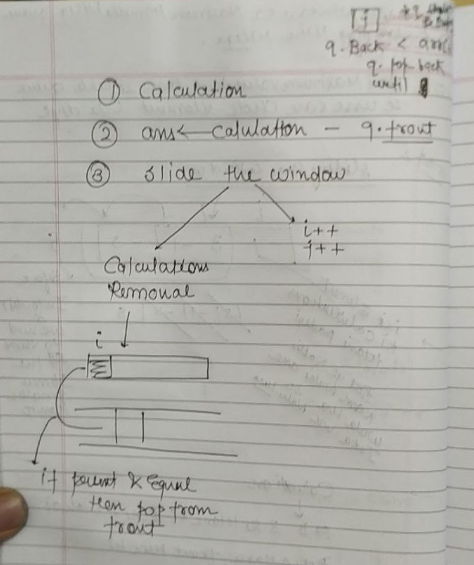 j
q. Back < arr
q. pop back
until
① Calculation
② ans ← calulation - q.front
③ Slide the window
i++
j++
Calculations
Removal
i
if parent & Equal
then pop from
front